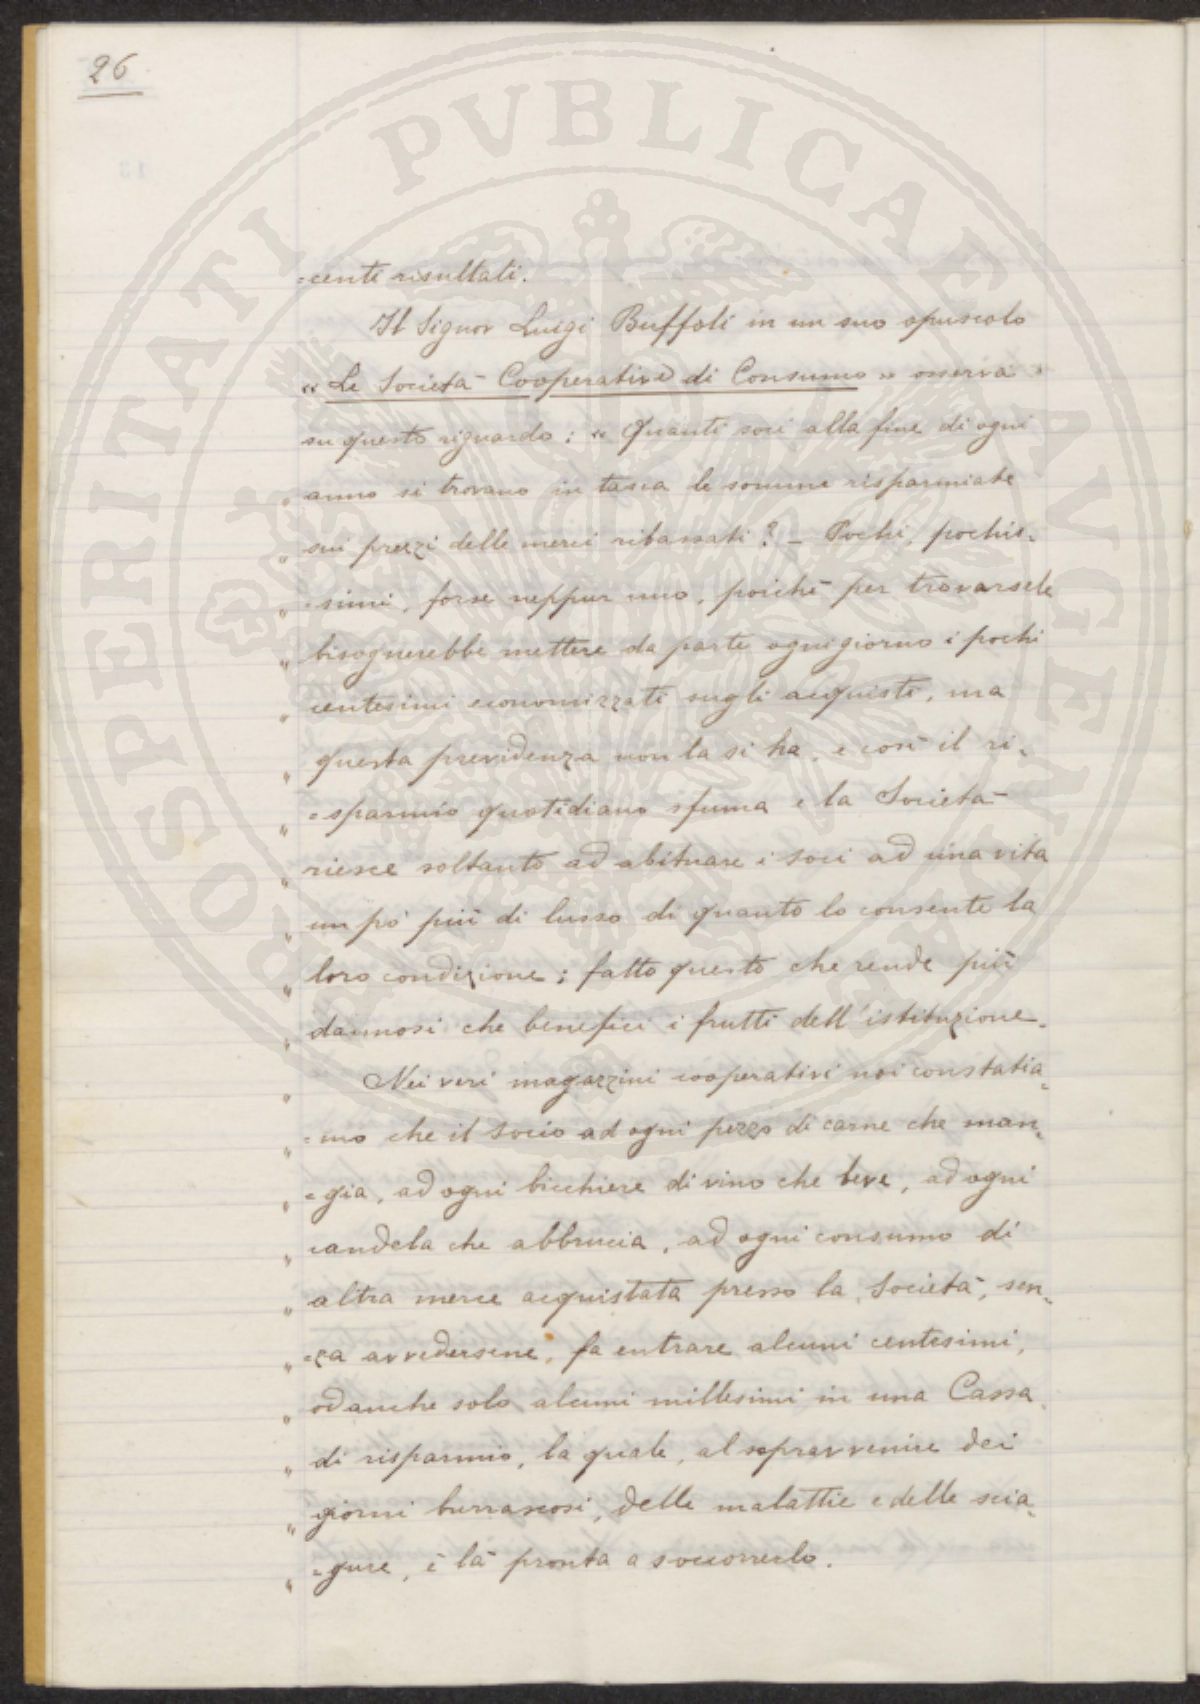 26
=centi risultati.
Il Signor Luigi Buffoli in un suo opuscolo
« Le Società Cooperative di Consumo » osserva
su questo riguardo: « Quanti soci alla fine di ogni
" anno si trovano in tasca le somme risparmiate
" sui prezzi delle merci ribassati? – Pochi, pochis=
" =simi, forse neppur uno, poichè per trovarsele
" bisognerebbe mettere da parte ogni giorno i pochi
" centesimi economizzati sugli acquisti, ma
" questa previdenza non la si ha, e così il ri=
" =sparmio quotidiano sfuma e la Società
" riesce soltanto ad abituare i soci ad una vita
" un pò più di lusso di quanto lo consente la
" loro condizione; fatto questo che rende più
" dannosi che benefici i frutti dell'istituzione.
" Nei veri magazzini cooperativi noi constatia=
" =mo che il socio ad ogni pezzo di carne che man=
" =gia, ad ogni bicchiere di vino che beve, ad ogni
" candela che abbrucia, ad ogni consumo di
" altra merce acquistata presso la Società, sen=
" =za avvedersene, fa entrare alcuni centesimi,
" od anche solo alcuni millesimi in una Cassa
" di risparmio, la quale, al sopravvenire dei
" giorni burrascosi, delle malattie e delle scia=
" =gure, è là pronta a soccorrerlo.
PROSPERITATI PVBLICAE AVGENDAE